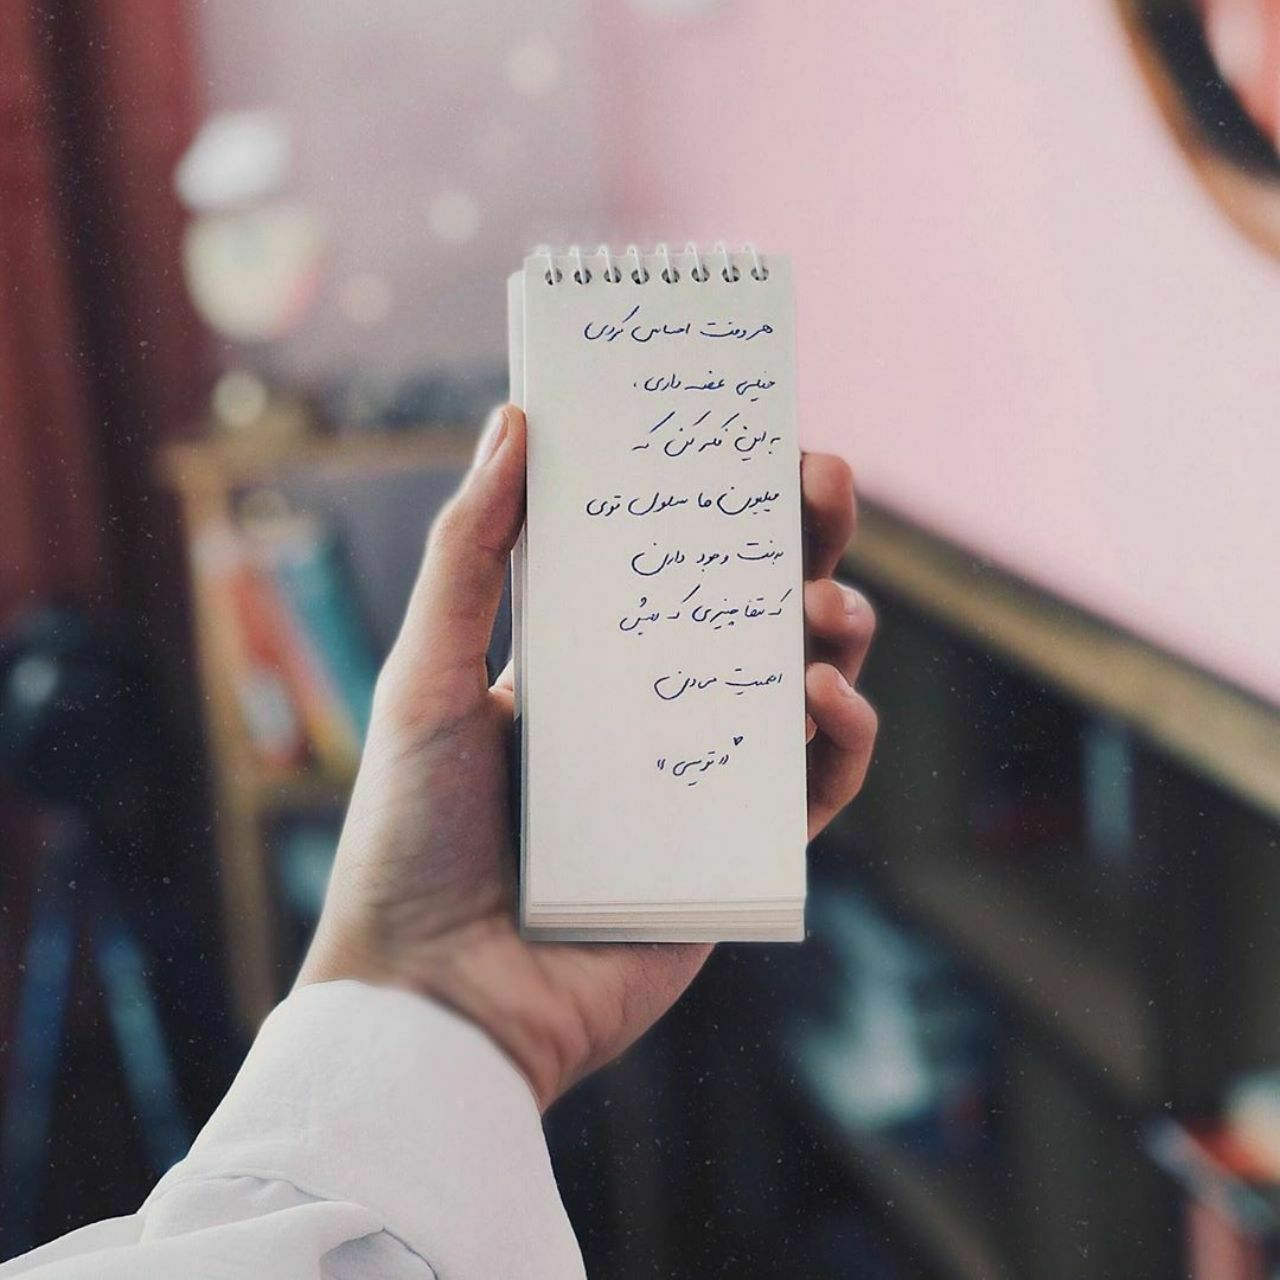 هر وقت احساس کردی
خیلی غصه داری،
به این فکر کن که
میلیون ها سلول توی
بدنت وجود دارن
که تنها چیزی که بهش
اهمیت میدن
"تویی"